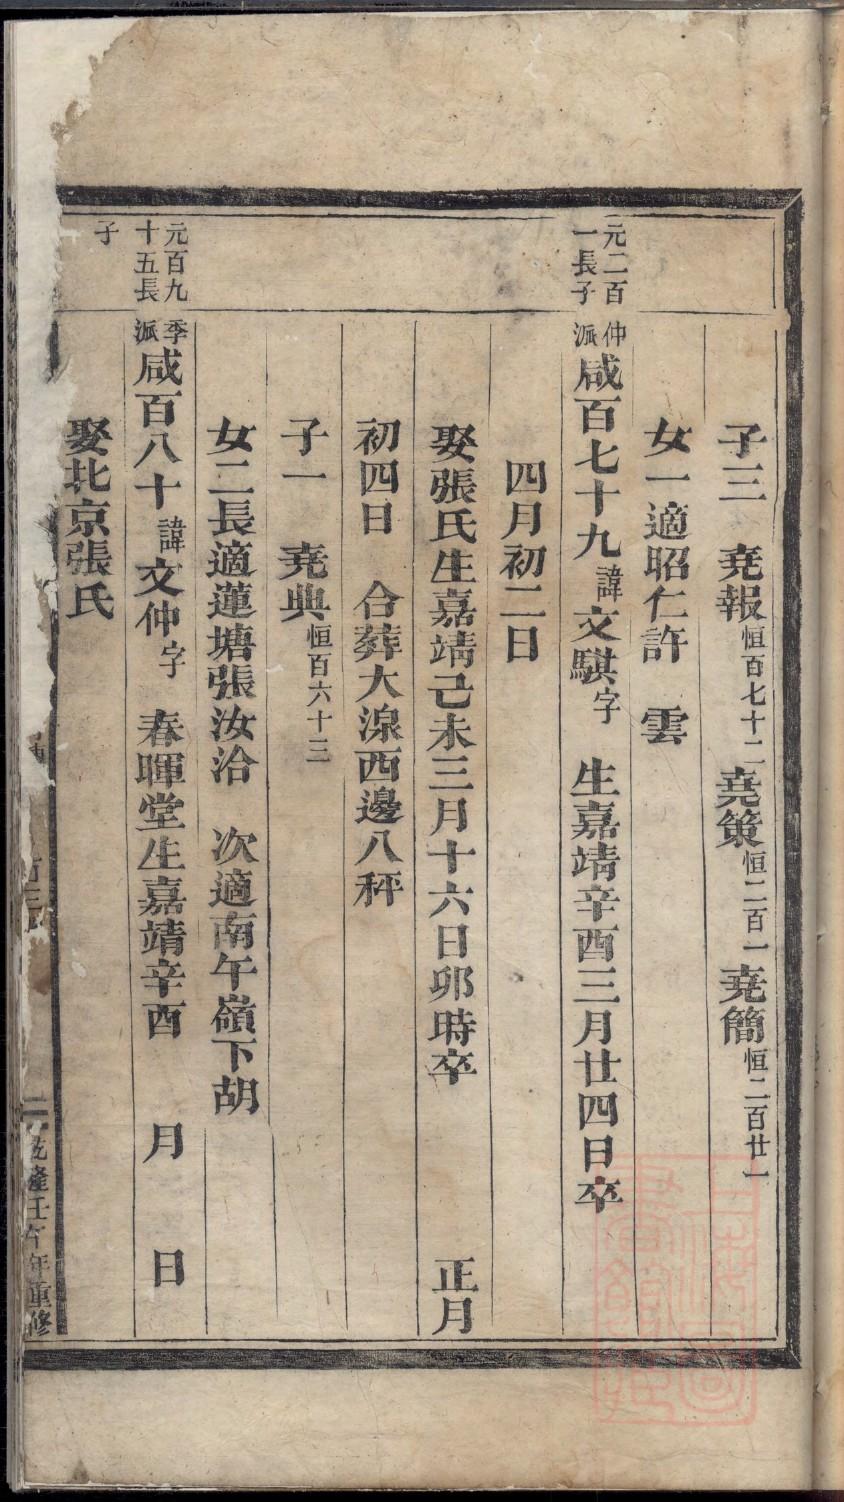 子三　堯報恒百七十二堯策恒二百一堯簡恒二百廿一
女一適昭仁許　雲
元二百一長子
仲派咸百七十九諱文騏字　生嘉靖辛酉三月廿四日卒
四月初二日
娶張氏生嘉靖己未三月十六日卯時卒　正月
初四日　合葬大湶西邊八秤
子一　堯典恒百六十三
女二長適蓮塘張汝洽　次適南午嶺下胡
元百九十五長子
季派咸百八十諱文仲字　春暉堂生嘉靖辛酉　月　日
娶北京張氏
乾隆壬午年重修